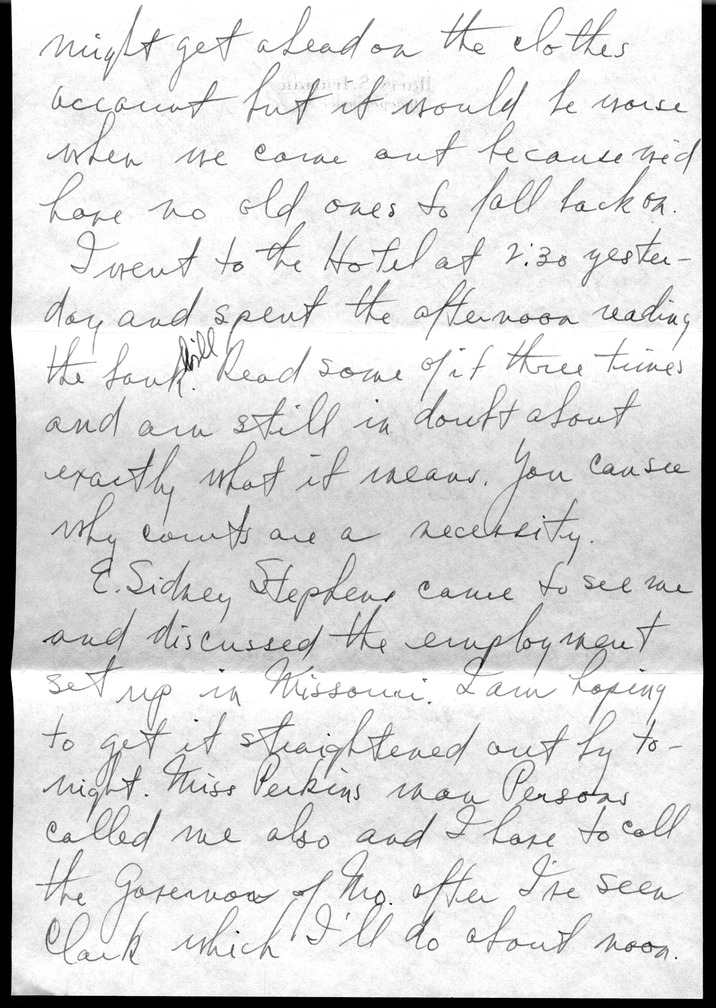 might get ahead on the clothes
account but it would be worse
when we came out because we'd
have no old ones to fall back on.
I went to the Hotel at 2:30 yester-
day and spent the afternoon reading
the bank bill. Read some of it three times
and am still in doubt about
exactly what it means. You can see
why courts are a necessity.
E. Sidney Stephens came to see me
and discussed the employment
set up in Missouri. I am hoping
to get it straightened out by to-
night. Miss Perkins man Persons
called me also and I have to call
the Governor of Mo. after I've seen
Clark which I'll do about noon.